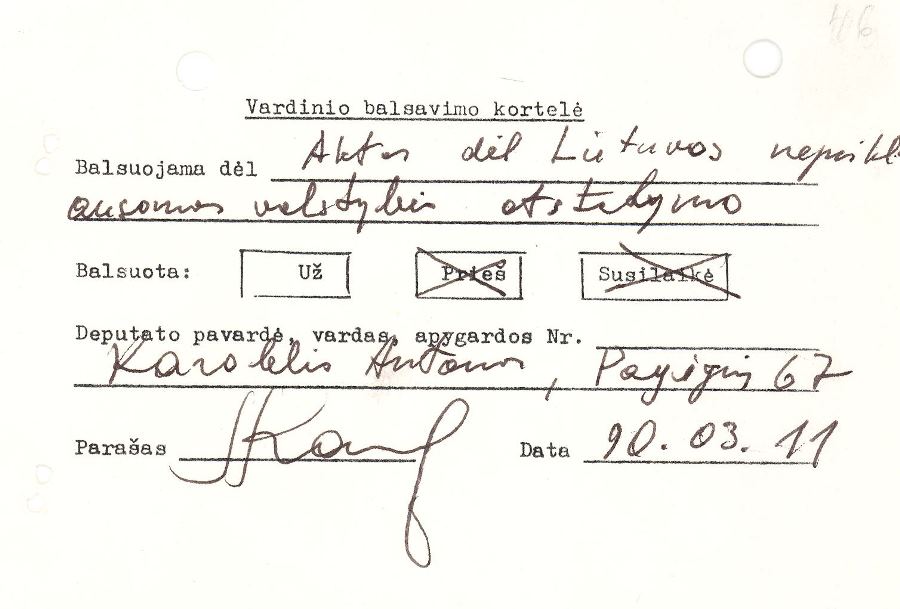 46
Vardinio balsavimo kortelė
Balsuojama dėl Aktas dėl Lietuvos neprikl
ausomos valstybės atstatymo
Balsuota: Už Prieš Susilaikė
Deputato pavardė, vardas, apygardos Nr.
Karoblis Antanas, Pagėgių 67
Parašas
Data 90.03.11